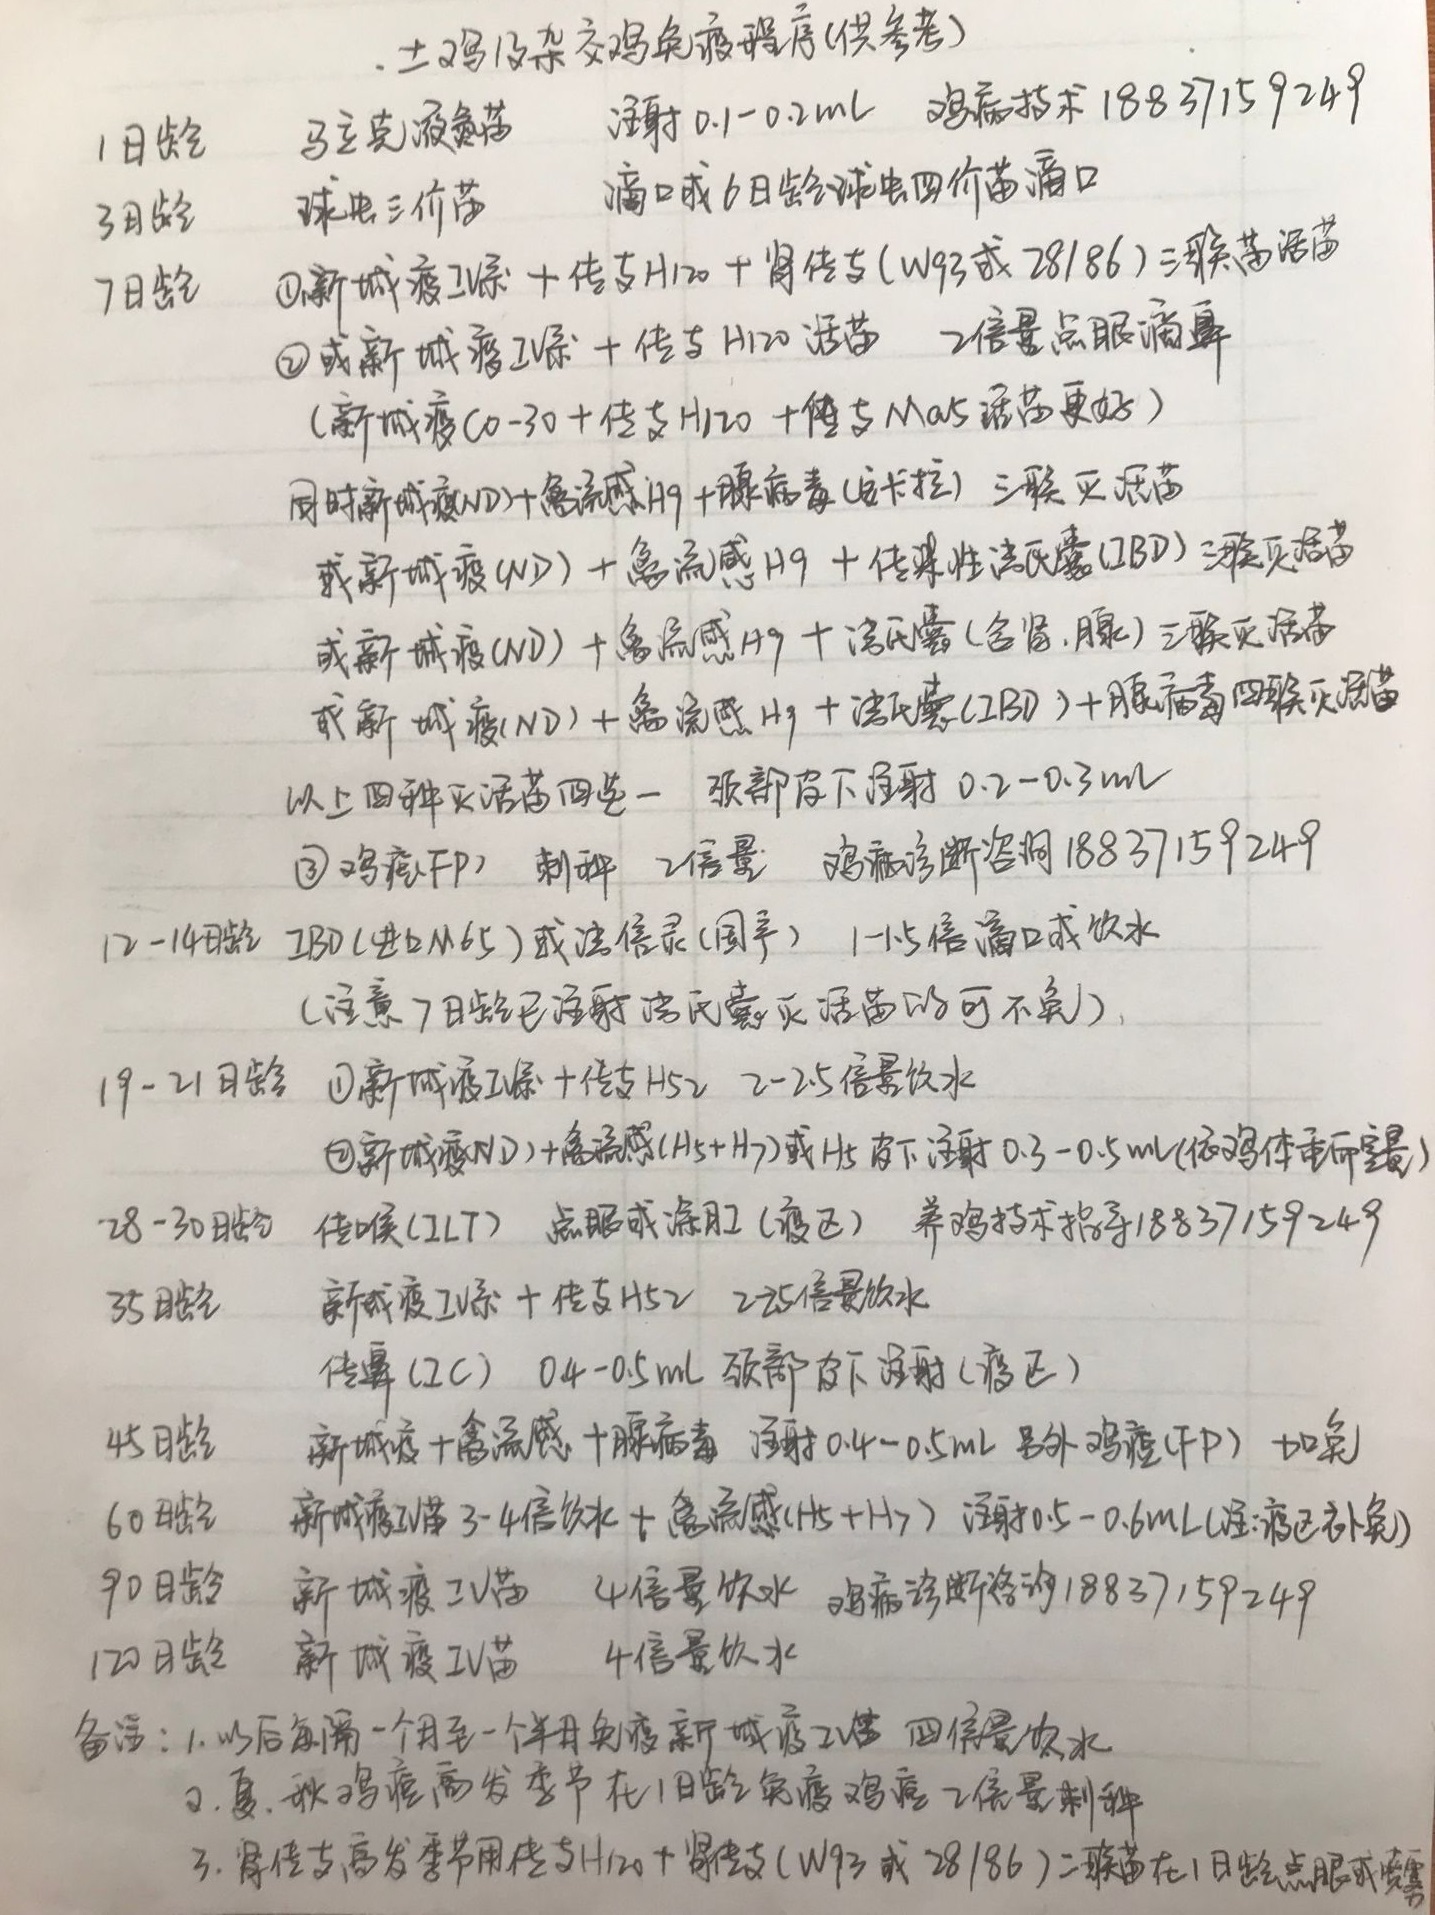 土鸡及杂交鸡免疫程序(供参考)
1日龄 马立克液氮苗 注射0.1-0.2mL 鸡病技术18837159249
3日龄 球虫三价苗 滴口或6日龄球虫四价苗滴口
7日龄 ①新城疫IV系+传支H120+肾传支(W93或28/86)三联苗活苗
②或新城疫IV系+传支H120活苗 2倍量点眼滴鼻
(新城疫Co-30+传支H120+传支Ma5活苗更好)
同时新城疫(ND)+禽流感H9+腺病毒(安卡拉) 三联灭活苗
或新城疫(ND)+禽流感H9+传染性法氏囊(IBD)三联灭活苗
或新城疫(ND)+禽流感H9+法氏囊(含肾.腺)三联灭活苗
或新城疫(ND)+禽流感H9+法氏囊(IBD)+腺病毒四联灭活苗
以上四种灭活苗四选一 颈部皮下注射0.2-0.3mL
③鸡痘(FP) 刺种 2倍量 鸡病诊断咨询18837159249
12-14日龄 IBD(进口M65)或法倍灵(国产) 1-1.5倍滴口或饮水
(注意7日龄已注射法氏囊灭活苗的可不免)
19-21日龄 ①新城疫IV系+传支H52 2-2.5倍量饮水
②新城疫(ND)+禽流感(H5+H7)或H5皮下注射0.3-0.5mL(依鸡体重而定量)
28-30日龄 传喉(ILT) 点眼或涂肛(疫区) 养鸡技术指导18837159249
35日龄 新城疫IV系+传支H52 2-2.5倍量饮水
传鼻(IC) 0.4-0.5mL 颈部皮下注射(疫区)
45日龄 新城疫+禽流感+腺病毒 注射0.4-0.5mL 另外鸡痘(FP) 加免
60日龄 新城疫IV苗3-4倍饮水+禽流感(H5+H7) 注射0.5-0.6mL(注:疫区补免)
90日龄 新城疫IV苗 4倍量饮水 鸡病诊断咨询18837159249
120日龄 新城疫IV苗 4倍量饮水
备注:1.以后每隔一个月至一个半月免疫新城疫IV苗 四倍量饮水
2.夏.秋鸡痘高发季节在1日龄免疫鸡痘2倍量刺种
3.肾传支高发季节用传支H120+肾传支(W93或28/86)二联苗在1日龄点眼或喷雾